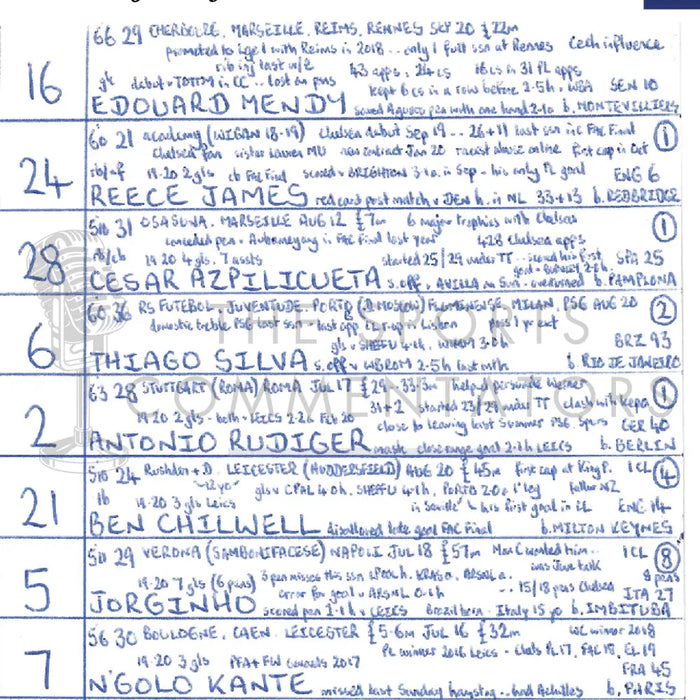 66 29 CHERBOURG, MARSEILLE, REIMS, RENNES SEP 20 £22m
promoted to Lge 1 with Reims in 2018 .. only 1 full ssn at Rennes Cech influence
rib inj last w/e 43 apps. 24 cs 16 cs in 31 PL apps
16 gk debut v TOTTM in CC .. lost on pens kept 6 cs in a row before 2-5 h v WBA SEN 10
EDOUARD MENDY saved Aguero pen with one hand 2-1 a b. MONTEVILLIERS
60 21 academy (WIGAN 18-19) Chelsea debut Sep 19 .. 26+11 last ssn inc FAC Final 1
Chelsea fan sister Lauren MU new contract Jan 20 racist abuse online first cap in Oct
24 rb/-f 19-20 2 gls cb FAC Final scored v BRIGHTON 3-1 a in Sep - his only PL goal ENG 6
REECE JAMES red card post match v DEN h. in NL 33+13 b. REDBRIDGE
510 31 OSASUNA, MARSEILLE AUG 12 £7m 6 major trophies with Chelsea 1
conceded pen - Aubameyang in FAC Final last year 428 Chelsea apps
28 rb/cb 19-20 4 gls. 7 assts started 25/29 under TT .. scored his first SPA 25
goal v BURNLEY 2-0 h
CESAR AZPILICUETA s.off v AVILLA b. PAMPLONA
60 36 RS FUTEBOL, JUVENTUDE, PORTO (D MOSCOW) FLUMINENSE, MILAN, PSG AUG 20 2
domestic treble PSG last ssn - last app CL r-up in Lisbon plus 1 yr ext
6 gls v SHEFFU 4-1h, 3-0 h BRZ 93
THIAGO SILVA s.off v WBROM 2-5 h last mth b. RIO DE JANEIRO
THE SPORTS
COMMENTATORS
63 28 STUTTGART (ROMA) ROMA JUL 17 £29-33.3m helped persuade Werner 1
31+2 started 23/29 under TT clash with Kepa
2 19-20 2 gls - both v LEICS 2-2 a Feb 20 close to leaving last Summer PSG, Spurs GER 40
ANTONIO RUDIGER mask close range goal 2-1 h LEICS b. BERLIN
510 24 Rushden + D LEICESTER (HUDDERSFIELD) AUG 20 £45m first cap at King P. 1 CL 4
-12yo-
21 lb 19-20 3 gls Leics gls v CPAL 4-0 h. SHEFFU 4-1h, PORTO 2-0 a 1st leg father NZ
in Seville his first goal in CL ENG 14
BEN CHILWELL disallowed late goal FAC Final b. MILTON KEYNES
511 29 VERONA (SAMBONIFACESE) NAPOLI JUL 18 £57m Man C wanted him .. 1 CL 8
was Juve talk 8 pens
5 19-20 7 gls (6 pens) 3 pen misses this ssn LPOOL h. KRAS a. ARSNL a.
error for goal v ARSNL 0-1 h .. 15/18 pens Chelsea ITA 27
JORGINHO scored pen 2-1 h v LEICS Brazil born - Italy 15 yo b. IMBITUBA
56 30 BOULOGNE, CAEN, LEICESTER £5.6m JUL 16 £32m WC winner 2018
PL winner 2016 Leics - Chels PL 17, FAC 18, EL 19
7 19-20 3 gls PFA + FW awards 2017 FRA 45
N'GOLO KANTE missed last Sunday hamstrng .. had Achilles b. PARIS